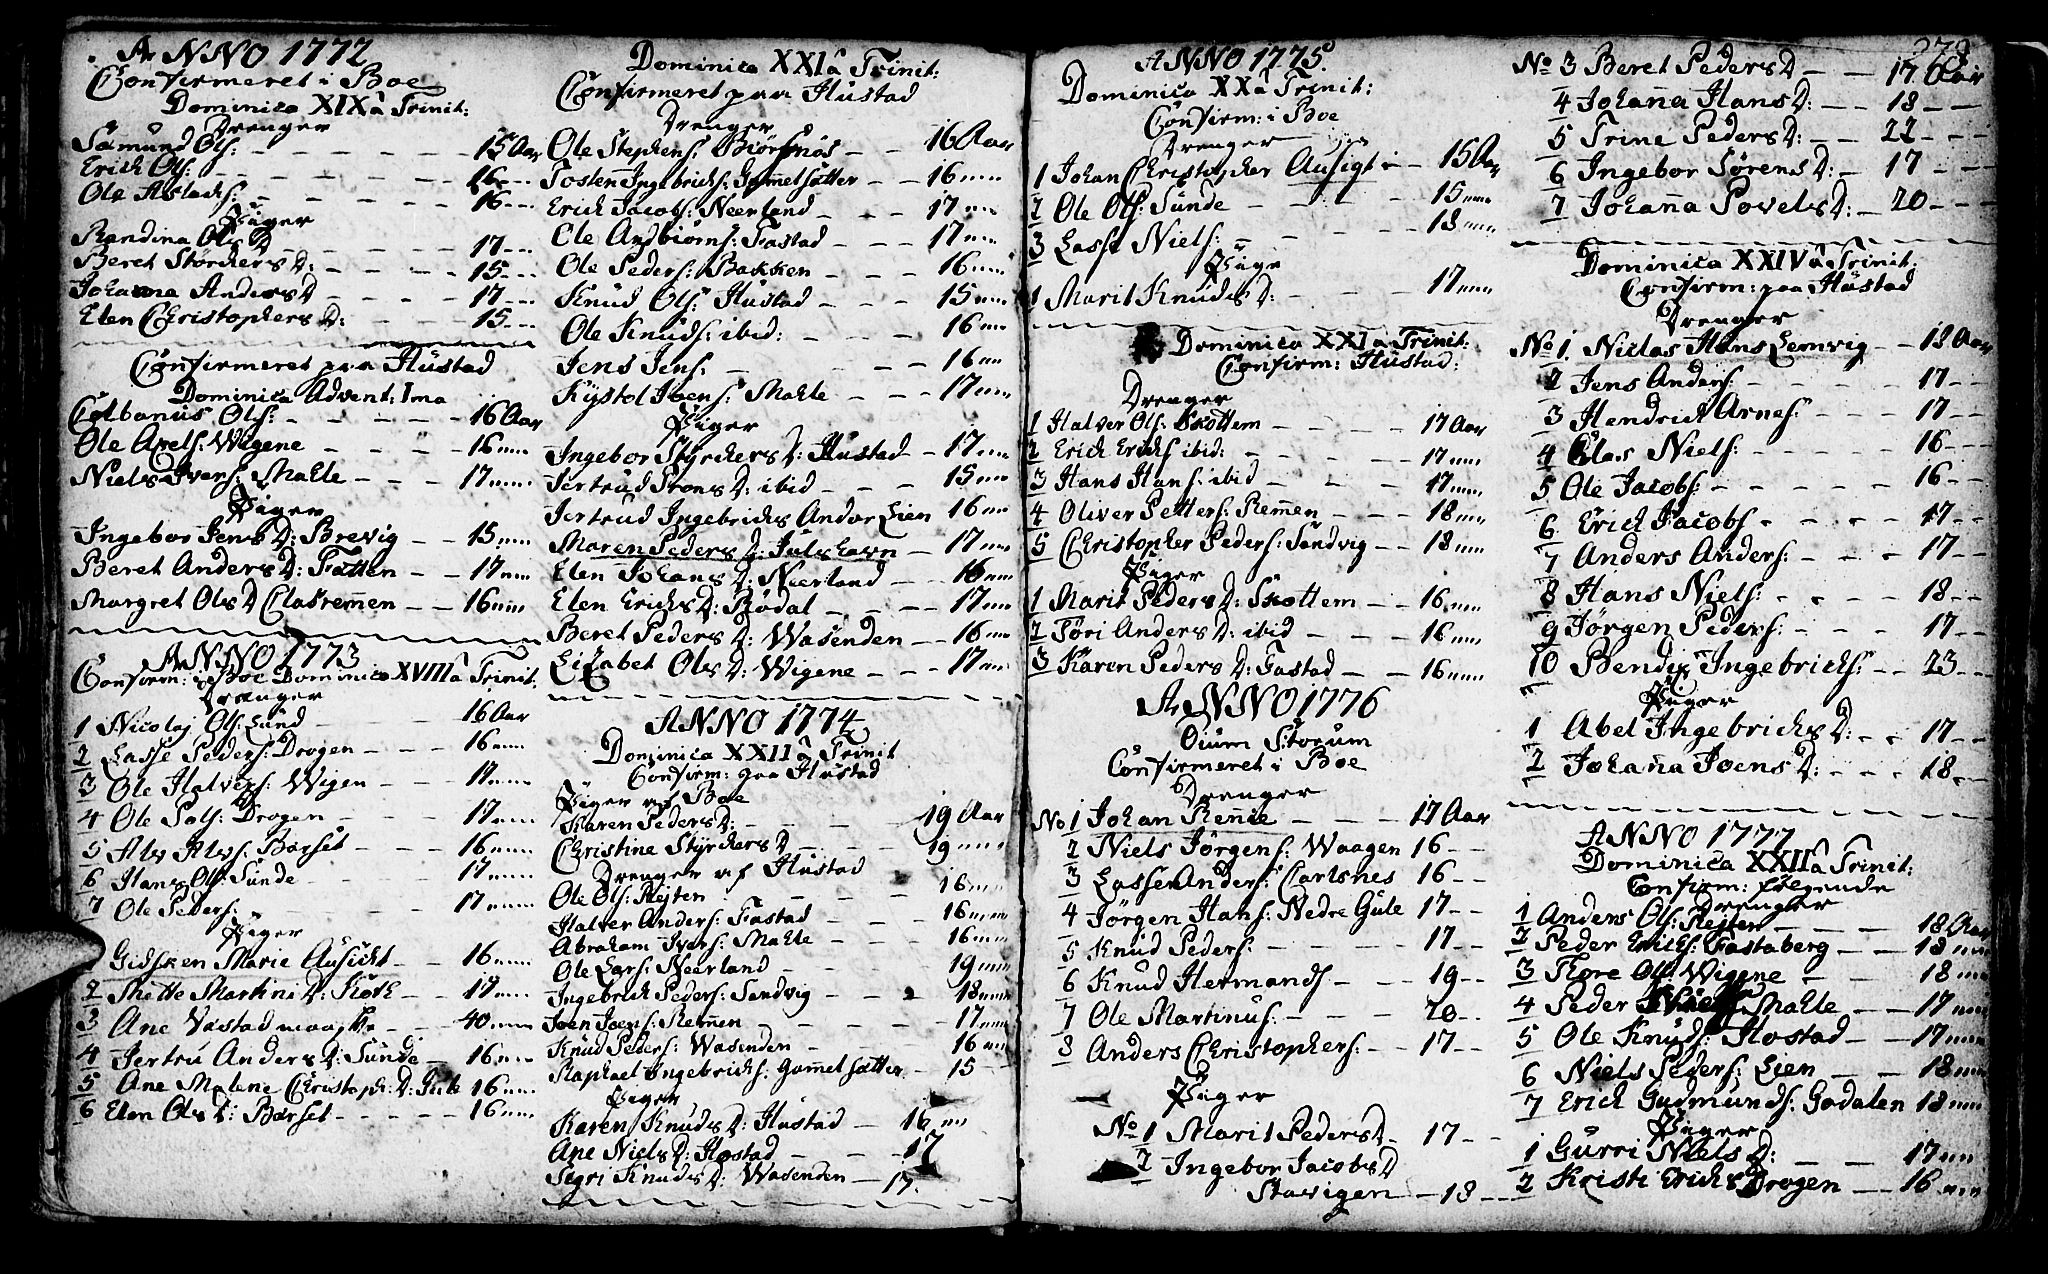 ANNO 1772
Confirmeret i Boe
Dominica XIX â Trinit:
Drenger
Sämund Ols: - - - 15 Aar
Erich Ols: - - - 16 - -
Ole Alstads: - - - 16 - -
Piger
Randina Ols D - - - 17 - -
Beret Storchers D: - - - 15 - -
Johanna Anders D - - - 17 - -
Elen Christophers D: - - - 15 - -
Confirmeret paa Hustad
Dominica Advent: Ima
Colbanus Ols: - - - 16 Aar
Ole Axels: Wigene - - - 16
Niels Ivers: Mahle - - - 17
Piger
Ingebor Jens D: Brevig - - 15
Beret Anders D: Fatten - - 17
Margret Ols D Clasremen - - 16
ANNO 1773
Confirm: i Boe Dominica XVIII â Trinit:
Drenger
1 Nicolaj Ols: Lund - - - 16 Aar
2 Lasse Peders: Drogen - - - 16
3 Ole Halvers: Wigen - - 17
4 Ole Pols: Drogen - - - 17
5 Alex Alexs: Barset - - - 16
6 Hans Ols: Sunde - - - 17
7 Ole Peders: - - - 17
Piger
1 Gidsken Marie Ausicht - - 16
2 Mette Martini D: Koth - - 17
3 Ane Vastad - - - 40
4 Jertru Anders D: Sunde - 16
5 Ane Malene Christoph: D: Gule 16
6 Elen Ols D: Barset - - - 16
Dominica XXI â Trinit:
Confirmeret paa Hustad
Drenger
Ole Stephens: Biørsnøs - - 16 Aar
Tosten Ingebrichs: Gammelsätter - - 16
Erich Jacobs: Neerland - - - 17
Ole Andbiørns: Fastad - - - 17
Ole Peders: Bakken - - - 16
Knud Ols: Hustad - - - 15
Ole Knuds: ibid: - - - 16
Jens Jens: - - - 16
Kystol Ivers: Mahle - - - 17
Piger
Ingebor Styrchers D: Hustad - 17
Jertrud Trons D: ibid - - - 15
Jertrud Ingebrichs Andor Lien 16
Maren Peders D: Julshavn - - 17
Elen Johans D: Neerland - - 16
Elen Erichs D: Rødal - - - 17
Beret Peders D: Wasenden - - 16
Lizabet Ols D: Wigene - - - 17
ANNO 1774
Dominica XXII â Trinit
Confirm: paa Hustad
Piger af Boe
Karen Peders D: - - - 19 Aar
Christine Styrchers D - - - 19
Drenger af Hustad
Ole Ols: Rejten - - - 16
Halver Anders: Fastad - - - 16
Abraham Ivers: Mahle - - - 16
Ole Lars: Neerland - - - 19
Ingebrich Peders: Sandvig - - - 18
Joen Joens: Remen - - - 17
Knud Peders: Wasenden - - - 16
Raphael Ingebrichs: Gammelsätter - 15 - -
Piger
Karen Knuds D: Hustad - - 16
Ane Niels D: Hostad - - - 17
Segri Knuds D: Wasenden - - 17.
ANNO 1775.
Dominica XX â Trinit:
Confirm: i Boe
Drenger
1 Johan Christopher Ausigt - - 15 Aar
2 Ole Ols: Sunde - - - 15
3 Lasse Niels: - - - 18
Pige
1 Marit Knuds D: - - - 17
Dominica XXI â Trinit:
Confirm: Hustad:
Drenger
1 Halver Ols: Skottem - - - 17 Aar
2 Erich Erichs ibid: - - - 17
3 Hans Hans: ibid - - - 17
4 Oliver Petters: Remen - - - 18
5 Christopher Peders: Sandvig - - 18
Piger
1 Marit Peders D: Skottem - - 16
2 Tori Anders D: ibid - - - 16
3 Karen Peders D: Fastad - - - 16
ANNO 1776
Oium Storum
Confirmeret i Boe
Drenger
No 1 Johan Rennie - - - 17 Aar
2 Niels Jørgens: Waagen 16 - -
3 Lasse Anders: Carlsnes 16 - -
4 Jørgen Hans: Nedre Gule 17 - -
5 Knud Peders: - - - 17 - -
6 Knud Hermands - - - 19 - -
7 Ole Martinus: - - - 20 - -
8 Anders Christophers: - - 17 - -
Piger
No 1 Marit Peders D - 17 - -
2 Ingebor Jacobs D
Stavigen - - 18 - -
272
No 3 Beret Peders D - - 17 Aar
4 Johanna Hans D: - - 18 - -
5 Trine Peders D: - - 22 - -
6 Ingebor Sørens D: - 17 - -
7 Johanna Povels D: - 20 - -
Dominica XXIV â Trinit:
Confirm: paa Hustad
Drenger
No 1 Niclas Hans Lemvig - - 18 Aar
2 Jens Anders: - - - 17 - -
3 Hendrich Arnes: - - - 17 - -
4 Clas Niels: - - - 16 - -
5 Ole Jacobs: - - - 16 - -
6 Erich Jacobs - - - 17 - -
7 Anders Anders: - - - 17 - -
8 Hans Niels: - - - 18 - -
9 Jørgen Peders: - - - 17 - -
10 Bendix Ingebrichs: - - 23 - -
Piger
1 Abel Ingebrichs D: - - 17 - -
2 Johanna Joens D: - - - 18 - -
ANNO 1777
Dominica XXII â Trinit:
Confirm: følgende
Drenger
1 Anders Ols: Rejten - - - 18 Aar
2 Peder Erichs: Fastaberg - - 18
3 Tore Ols: Wigene - - 18
4 Peder Mahle - - 17
5 Ole Knuds: Hostad - - 17
6 Niels Peders: Lien - - 18
7 Erich Gudmunds: Godalen 18
Piger
1 Gurri Niels D: - - - 17
2 Kristi Erichs Drogen - - 16